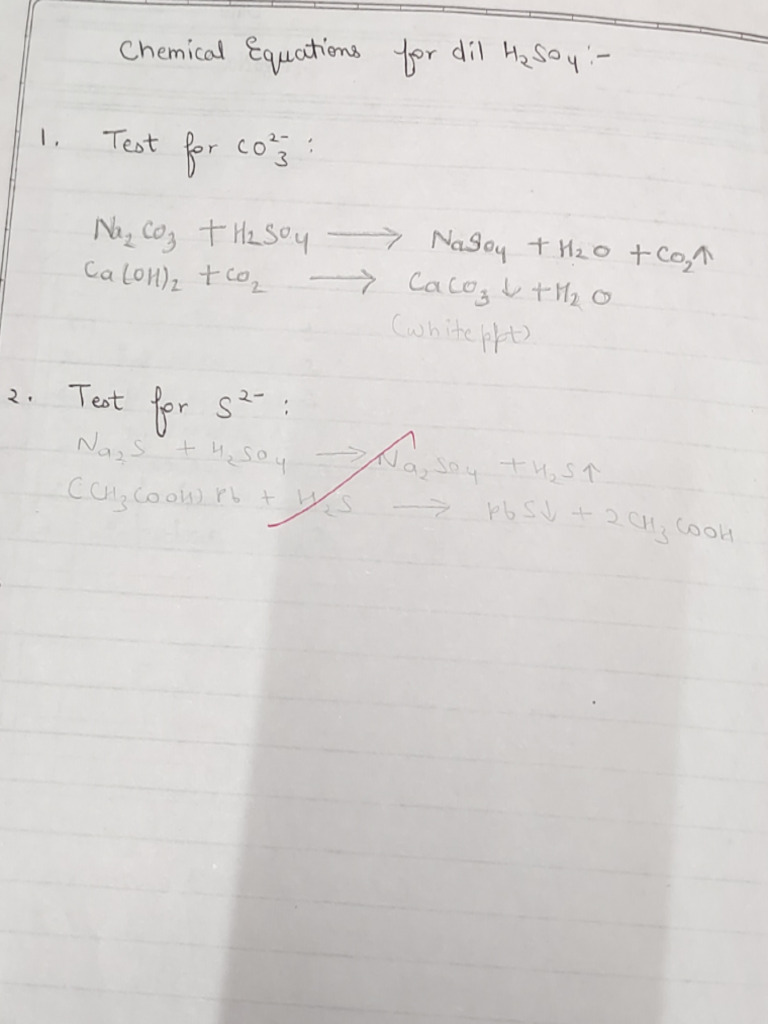 Chemical Equations for dil H₂SO₄:-
1. Test for CO₃²⁻ :
Na₂CO₃ + H₂SO₄ ⟶ NaSO₄ + H₂O + CO₂↑
Ca(OH)₂ + CO₂ ⟶ CaCO₃↓ + H₂O
(white ppt)
2. Test for S²⁻ :
Na₂S + H₂SO₄ ⟶ Na₂SO₄ + H₂S↑
(CH₃COOH) Pb + H₂S ⟶ PbS↓ + 2CH₃COOH